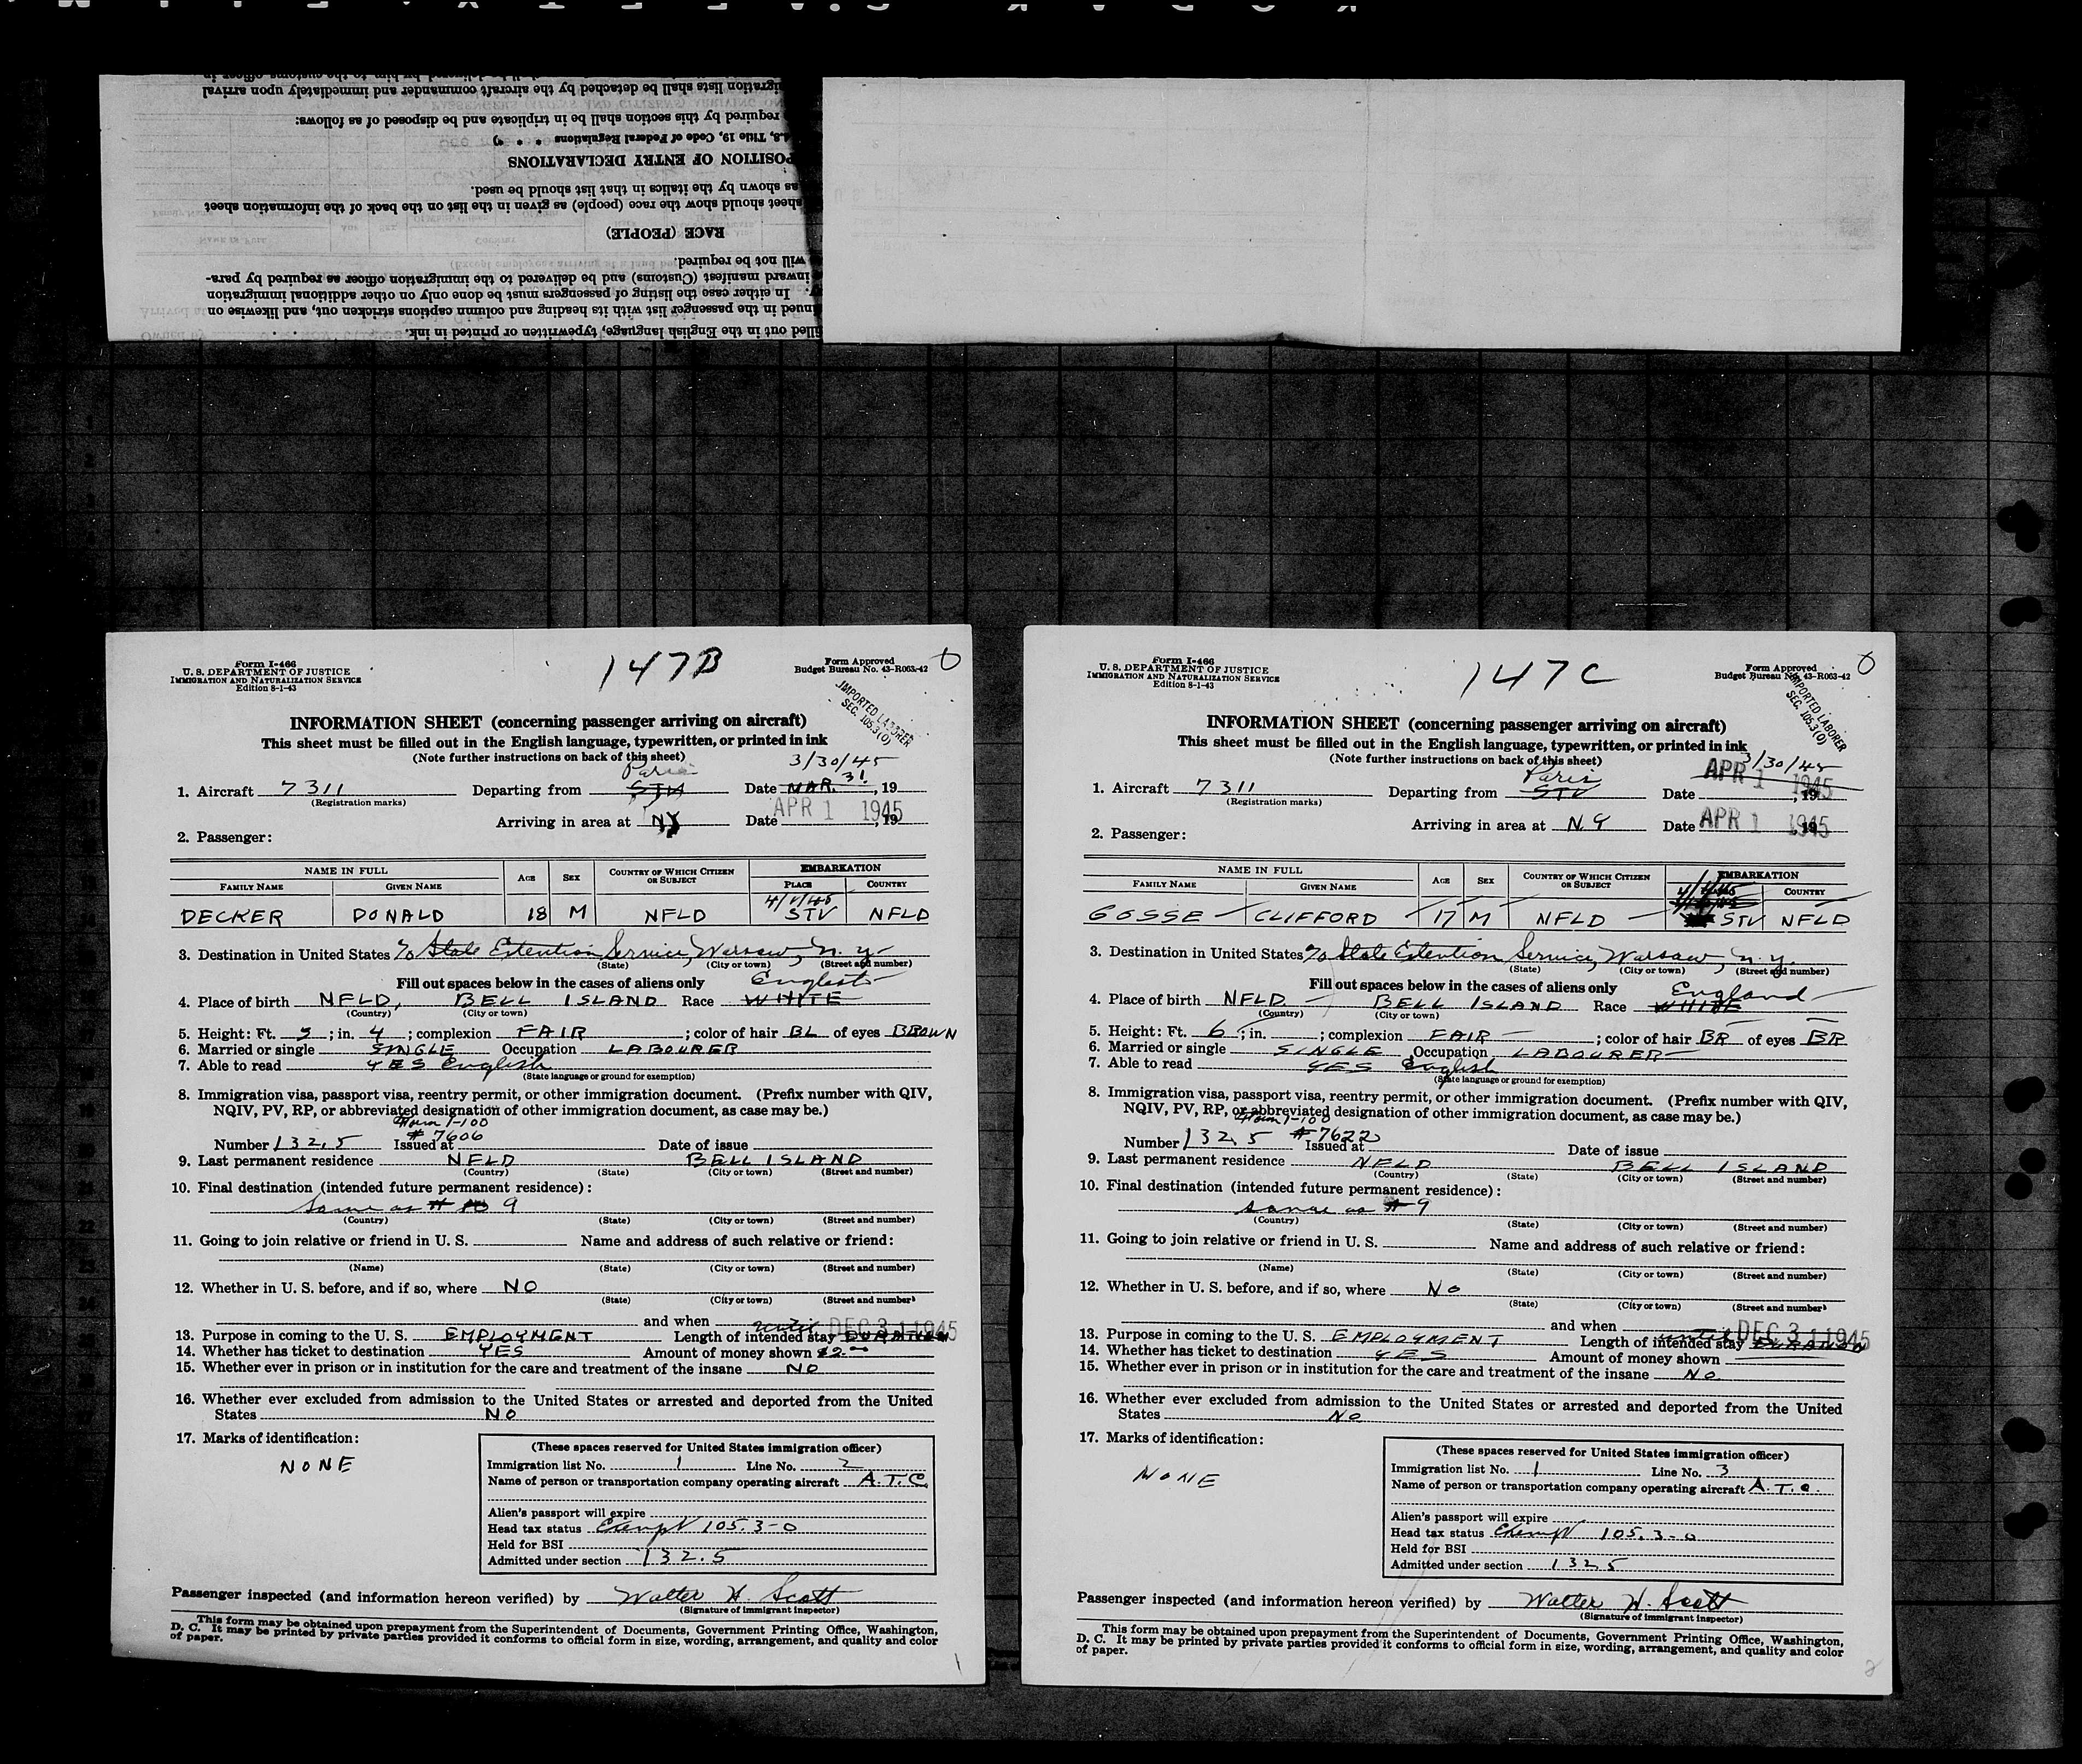 filled out in the English language, typewritten or printed in ink.
nued in the passenger list with its heading and column captions stricken out, and likewise on
In either case the listing of passengers must be done only on other additional immigration
inward manifest (Customs) and be delivered to the immigration officer as required by para-
will not be required.
RACE (PEOPLE)
sheet should show the race (people) as given in the list on the back of the information sheet
as shown by the italics in that list should be used.
POSITION OF ENTRY DECLARATIONS
4.8, Title 19, Code of Federal Regulations * * *)
required by this section shall be in triplicate and be disposed of as follows:
gration lists shall be detached by the aircraft commander and immediately upon arrival
Form I-466
U. S. DEPARTMENT OF JUSTICE
IMMIGRATION AND NATURALIZATION SERVICE
Edition 8-1-43
147B
Form Approved
Budget Bureau No. 43-R063-42
IMPORTED LABORER
SEC. 105.3(O)
INFORMATION SHEET (concerning passenger arriving on aircraft)
This sheet must be filled out in the English language, typewritten, or printed in ink
(Note further instructions on back of this sheet)
3/30/45
Paris
1. Aircraft 7311 Departing from STV Date MAR. 31, 19
(Registration marks)
Arriving in area at NY Date APR 1 1945, 19
2. Passenger:
NAME IN FULL AGE SEX COUNTRY OF WHICH CITIZEN OR SUBJECT EMBARKATION
FAMILY NAME GIVEN NAME PLACE COUNTRY
4/1/45
DECKER DONALD 18 M NFLD STV NFLD
3. Destination in United States % State Extention Service, Warsaw, N.Y.
(State) (City or town) (Street and number)
Fill out spaces below in the cases of aliens only
English
4. Place of birth NFLD, BELL ISLAND Race WHITE
(Country) (City or town)
5. Height: Ft. 5; in. 4; complexion FAIR; color of hair BL of eyes BROWN
6. Married or single SINGLE Occupation LABOURER
7. Able to read YES English
(State language or ground for exemption)
8. Immigration visa, passport visa, reentry permit, or other immigration document. (Prefix number with QIV,
NQIV, PV, RP, or abbreviated designation of other immigration document, as case may be.)
Form I-100
# 7606
Number 132.5 Issued at Date of issue
9. Last permanent residence NFLD BELL ISLAND
(Country) (State) (City or town) (Street and number)
10. Final destination (intended future permanent residence):
Same as # 9
(Country) (State) (City or town) (Street and number)
11. Going to join relative or friend in U. S. Name and address of such relative or friend:
(Name) (State) (City or town) (Street and number)
12. Whether in U. S. before, and if so, where NO
(State) (City or town) (Street and number)
and when
until DEC 31 1945
13. Purpose in coming to the U. S. EMPLOYMENT Length of intended stay DURATION
14. Whether has ticket to destination YES Amount of money shown
15. Whether ever in prison or in institution for the care and treatment of the insane NO
16. Whether ever excluded from admission to the United States or arrested and deported from the United
States NO
17. Marks of identification:
NONE
(These spaces reserved for United States immigration officer)
Immigration list No. 1 Line No. 2
Name of person or transportation company operating aircraft A.T.C.
Alien's passport will expire
Head tax status Exempt 105.3-0
Held for BSI
Admitted under section 132.5
Passenger inspected (and information hereon verified) by Walter H. Scott
(Signature of immigrant inspector)
This form may be obtained upon prepayment from the Superintendent of Documents, Government Printing Office, Washington,
D. C. It may be printed by private parties provided it conforms to official form in size, wording, arrangement, and quality and color
of paper.
1
Form I-466
U. S. DEPARTMENT OF JUSTICE
IMMIGRATION AND NATURALIZATION SERVICE
Edition 8-1-43
147C
Form Approved
Budget Bureau No. 43-R063-42
IMPORTED LABORER
SEC. 105.3(O)
INFORMATION SHEET (concerning passenger arriving on aircraft)
This sheet must be filled out in the English language, typewritten, or printed in ink
(Note further instructions on back of this sheet)
3/30/45
Paris
1. Aircraft 7311 Departing from STV Date APR 1 1945, 19
(Registration marks)
Arriving in area at N.Y Date APR 1 1945, 19
2. Passenger:
NAME IN FULL AGE SEX COUNTRY OF WHICH CITIZEN OR SUBJECT EMBARKATION
FAMILY NAME GIVEN NAME COUNTRY
GOSSE CLIFFORD 17 M NFLD STV NFLD
3. Destination in United States % State Extention Service, Warsaw, N.Y.
(State) (City or town) (Street and number)
Fill out spaces below in the cases of aliens only
England
4. Place of birth NFLD. BELL ISLAND Race WHITE
(Country) (City or town)
5. Height: Ft. 6; in. ; complexion FAIR; color of hair BR of eyes BR
6. Married or single SINGLE Occupation LABOURER
7. Able to read YES English
(State language or ground for exemption)
8. Immigration visa, passport visa, reentry permit, or other immigration document. (Prefix number with QIV,
NQIV, PV, RP, or abbreviated designation of other immigration document, as case may be.)
Form I-100
# 7622
Number 132.5 Issued at Date of issue
9. Last permanent residence NFLD BELL ISLAND
(Country) (State) (City or town) (Street and number)
10. Final destination (intended future permanent residence):
same as # 9
(Country) (State) (City or town) (Street and number)
11. Going to join relative or friend in U. S. Name and address of such relative or friend:
(Name) (State) (City or town) (Street and number)
12. Whether in U. S. before, and if so, where NO
(State) (City or town) (Street and number)
and when
until DEC 31 1945
13. Purpose in coming to the U. S. EMPLOYMENT Length of intended stay DURATION
14. Whether has ticket to destination YES Amount of money shown
15. Whether ever in prison or in institution for the care and treatment of the insane NO
16. Whether ever excluded from admission to the United States or arrested and deported from the United
States NO
17. Marks of identification:
NONE
(These spaces reserved for United States immigration officer)
Immigration list No. 1 Line No. 3
Name of person or transportation company operating aircraft A.T.C.
Alien's passport will expire
Head tax status Exempt 105.3-0
Held for BSI
Admitted under section 132.5
Passenger inspected (and information hereon verified) by Walter H. Scott
(Signature of immigrant inspector)
This form may be obtained upon prepayment from the Superintendent of Documents, Government Printing Office, Washington,
D. C. It may be printed by private parties provided it conforms to official form in size, wording, arrangement, and quality and color
of paper.